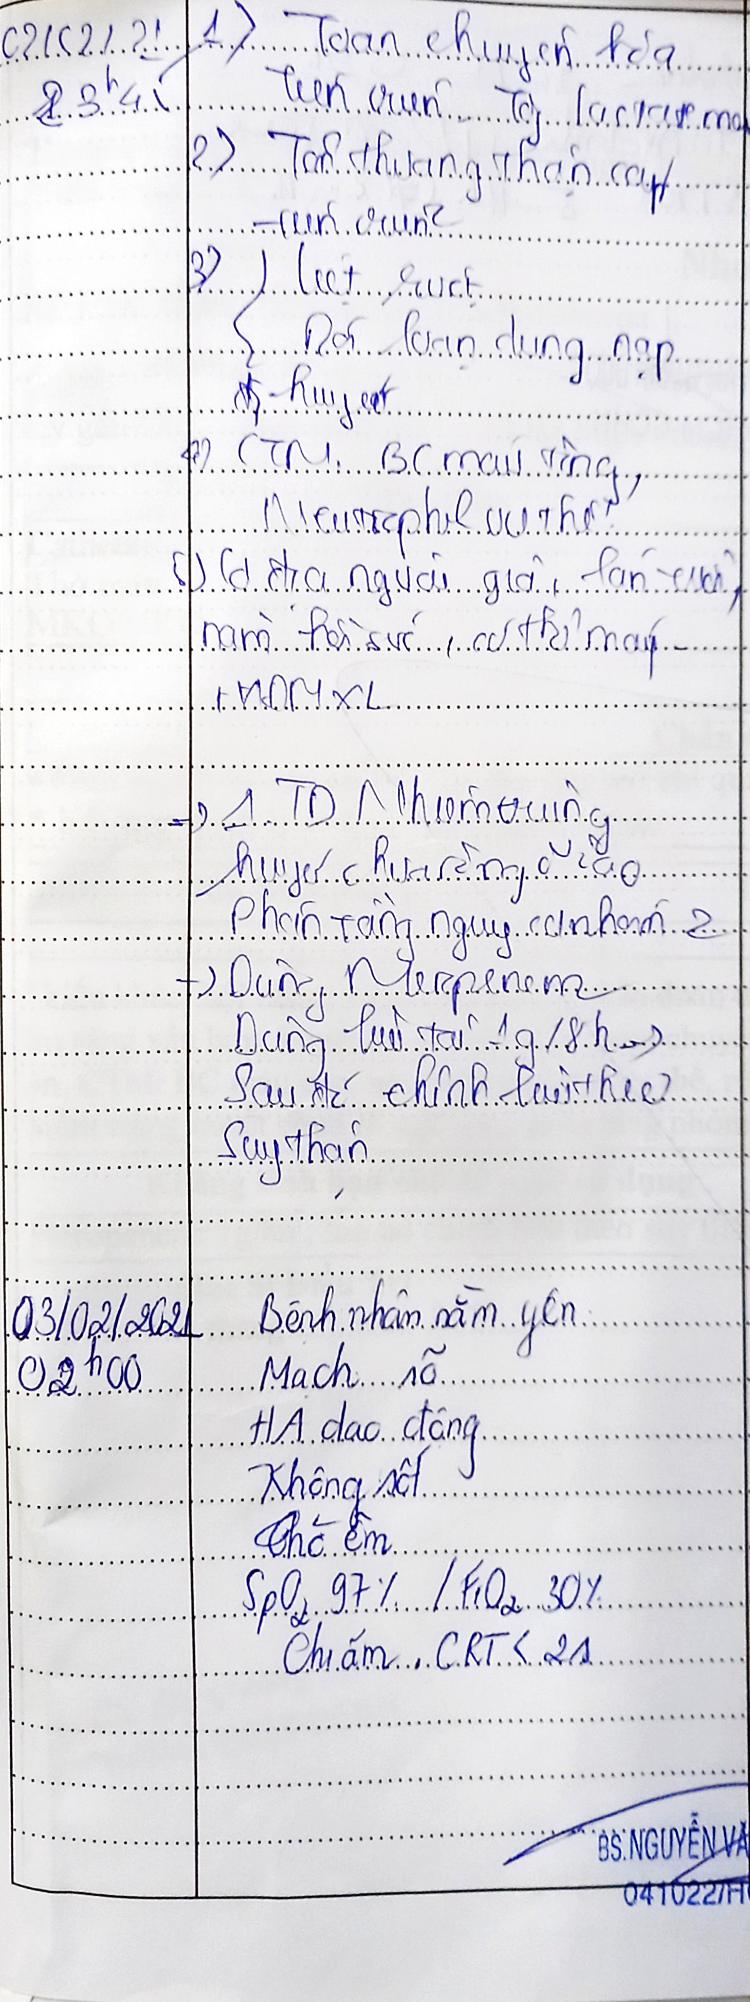 02/02/21 1) Toan chuyển hóa
23h45 tiến triển. Tăng lactate má
2) Tổn thương thận cấp
tiến triển
3) Liệt ruột
Rối loạn dung nạp
đg huyết
4) CTM. BC máu tăng,
Neutrophil ưu thế
5) Cơ địa người già, lớn tuổi,
nằm hồi sức, có thở máy
+ KTMXL
=> 1. TD Nhiễm trùng
huyết chưa rõ ng ổ vào
Phân tầng nguy cơ nhóm 2
-> Dùng Meropenem
Dùng liều tải 1g/8h ->
Sau đó chỉnh liều theo
Suy thận
03/02/2021 Bệnh nhân nằm yên
02h00 Mạch rõ
HA dao động
Không sốt
Thở êm
SpO2 97% / FiO2 30%
Chi ấm, CRT < 2s
BS.NGUYỄN VĂ
041022/H